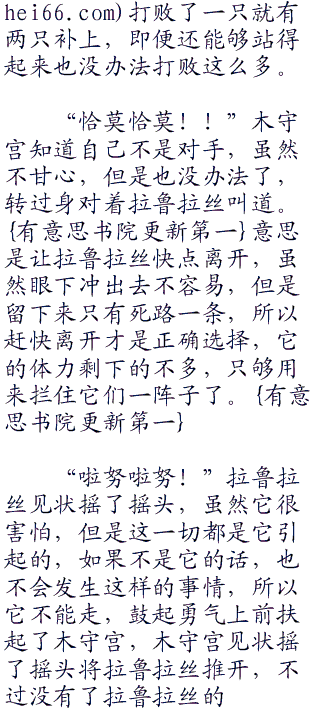 hei66.com)打败了一只就有
两只补上，即便还能够站得
起来也没办法打败这么多。
“恰莫恰莫！！”木守
宫知道自己不是对手，虽然
不甘心，但是也没办法了，
转过身对着拉鲁拉丝叫道。
{有意思书院更新第一}意思
是让拉鲁拉丝快点离开，虽
然眼下冲出去不容易，但是
留下来只有死路一条，所以
赶快离开才是正确选择，它
的体力剩下的不多，只够用
来拦住它们一阵子了。{有意
思书院更新第一}
“啦努啦努！”拉鲁拉
丝见状摇了摇头，虽然它很
害怕，但是这一切都是它引
起的，如果不是它的话，也
不会发生这样的事情，所以
它不能走，鼓起勇气上前扶
起了木守宫，木守宫见状摇
了摇头将拉鲁拉丝推开，不
过没有了拉鲁拉丝的